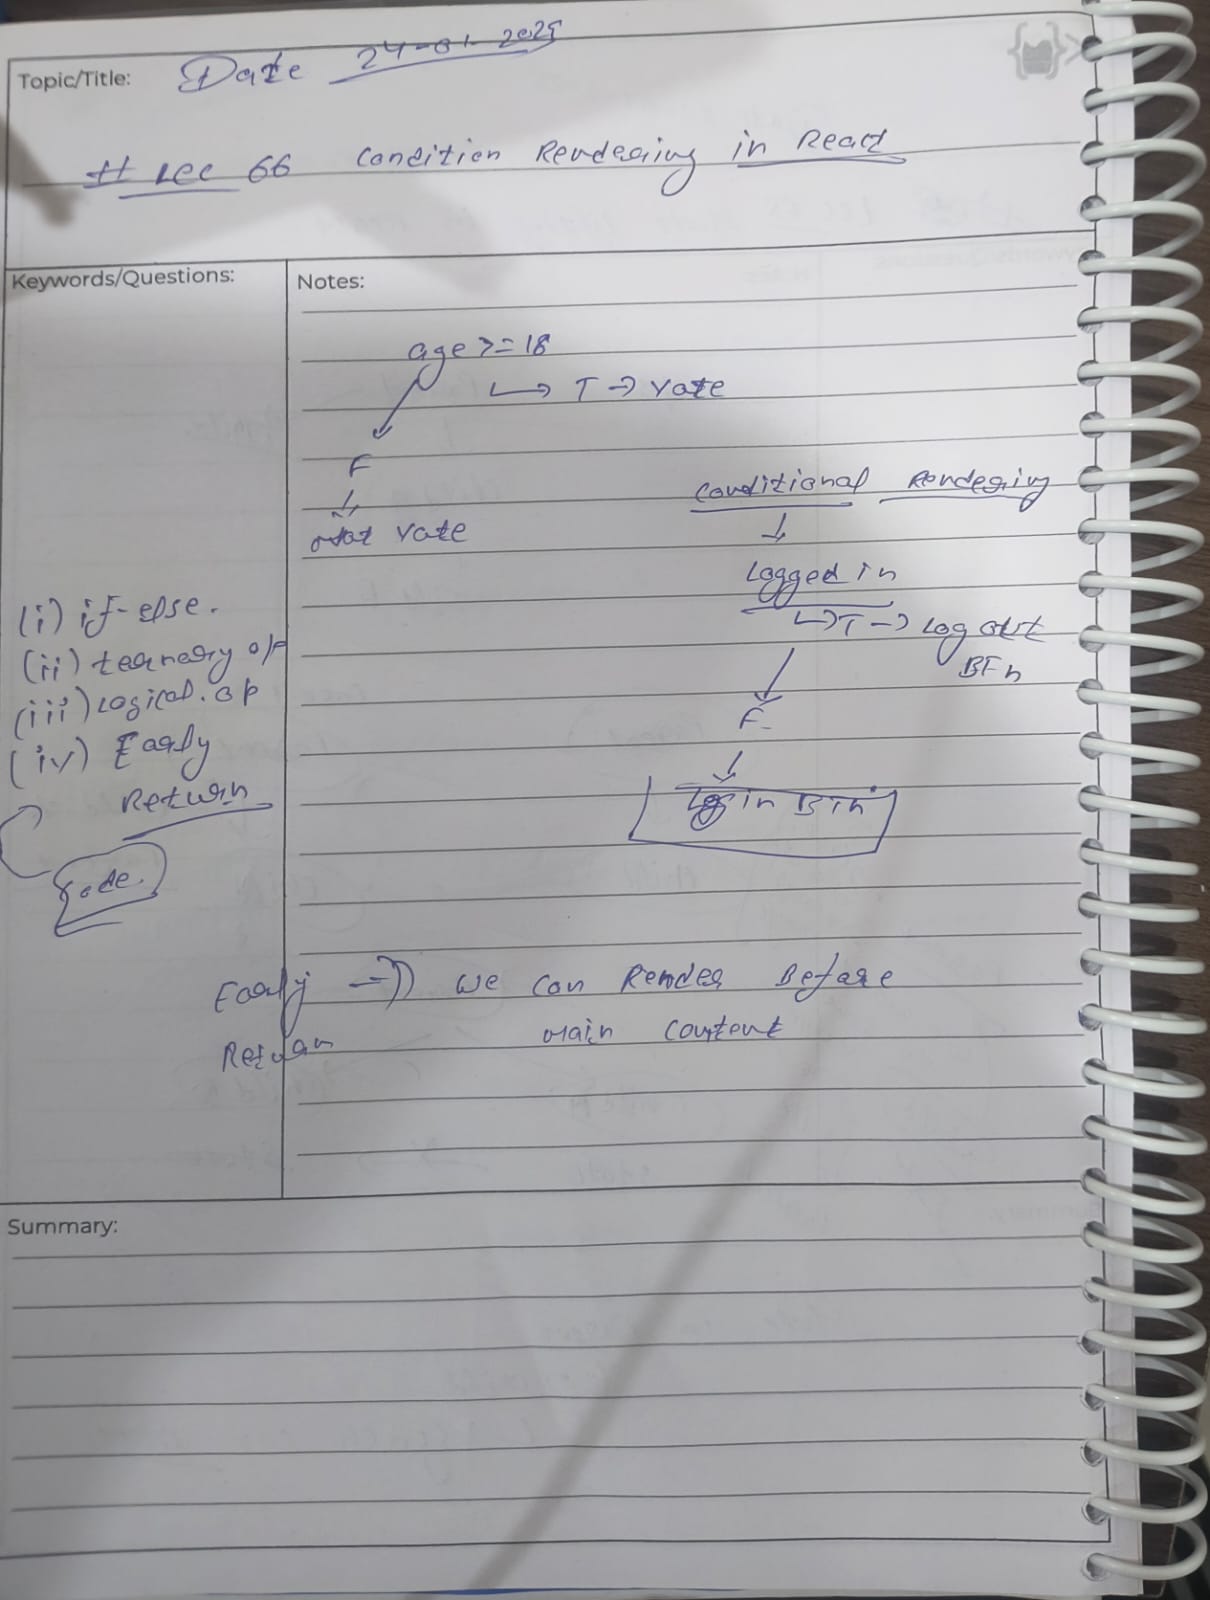 Topic/Title: Date 24-01-2025
# Lec 66 Condition Rendering in React
Keywords/Questions:
(i) if-else.
(ii) ternary op
(iii) Logical.op
(iv) Early
Return
Code.
Notes:
age >= 18
↳ T → Vote
F
↓
Not Vote
Conditional Rendering
↓
Logged in
↳ T → Log out
BTn
F
↓
Log in Btn
Early ⇒ We Can Render Before
Return Main Content
Summary: